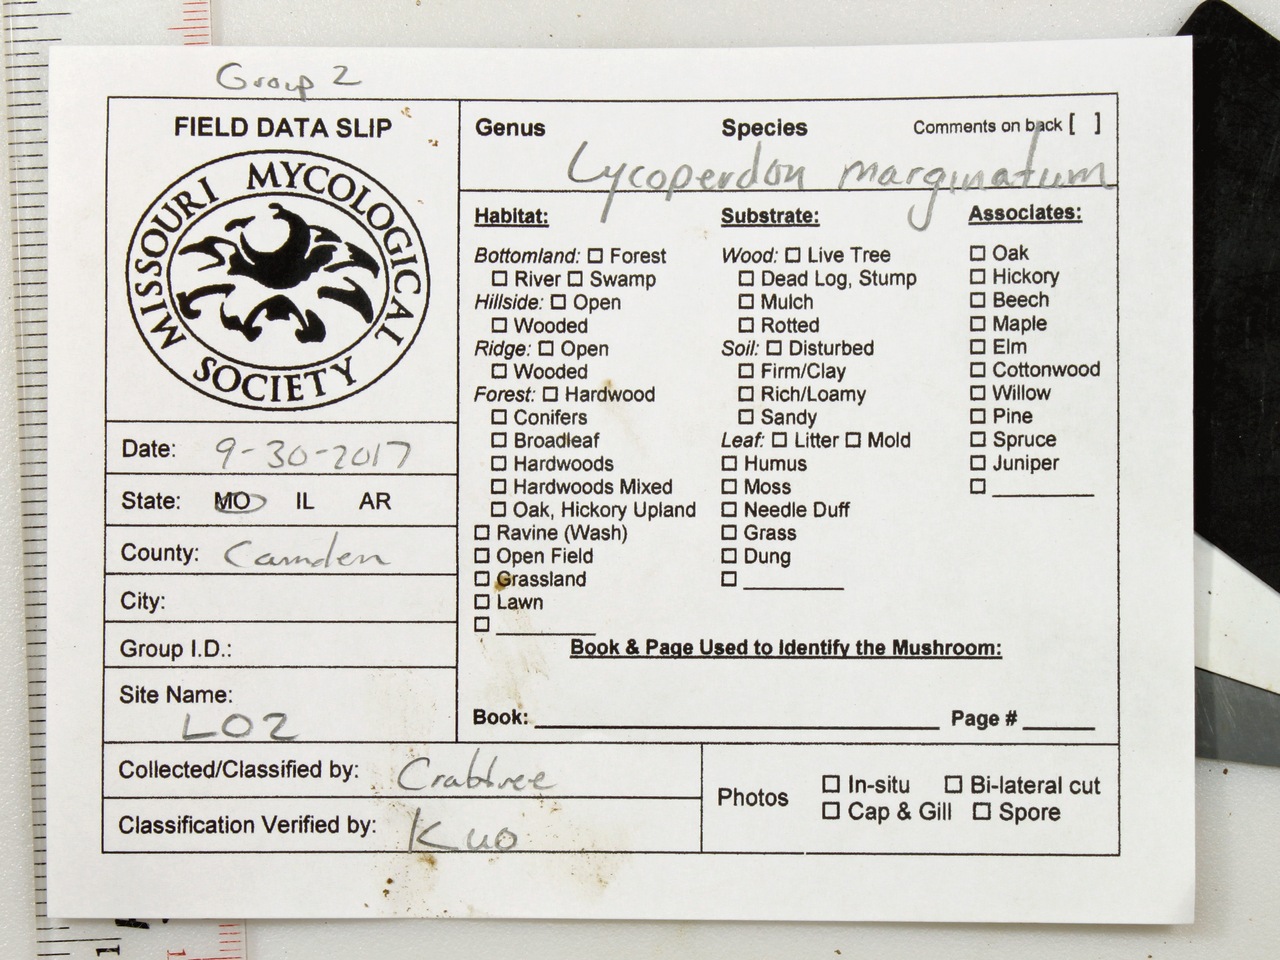 Group 2
FIELD DATA SLIP
MISSOURI MYCOLOGICAL SOCIETY
Date: 9-30-2017
State: MO IL AR
County: Camden
City:
Group I.D.:
Site Name:
LO2
Genus Species Comments on back [ ]
Lycoperdon marginatum
Habitat:
Bottomland: ☐ Forest
☐ River ☐ Swamp
Hillside: ☐ Open
☐ Wooded
Ridge: ☐ Open
☐ Wooded
Forest: ☐ Hardwood
☐ Conifers
☐ Broadleaf
☐ Hardwoods
☐ Hardwoods Mixed
☐ Oak, Hickory Upland
☐ Ravine (Wash)
☐ Open Field
☐ Grassland
☐ Lawn
☐ ________
Substrate:
Wood: ☐ Live Tree
☐ Dead Log, Stump
☐ Mulch
☐ Rotted
Soil: ☐ Disturbed
☐ Firm/Clay
☐ Rich/Loamy
☐ Sandy
Leaf: ☐ Litter ☐ Mold
☐ Humus
☐ Moss
☐ Needle Duff
☐ Grass
☐ Dung
☐ ________
Associates:
☐ Oak
☐ Hickory
☐ Beech
☐ Maple
☐ Elm
☐ Cottonwood
☐ Willow
☐ Pine
☐ Spruce
☐ Juniper
☐ ________
Book & Page Used to Identify the Mushroom:
Book: ________ Page # ____
Collected/Classified by: Crabtree
Classification Verified by: Kuo
Photos ☐ In-situ ☐ Bi-lateral cut
☐ Cap & Gill ☐ Spore
1 1